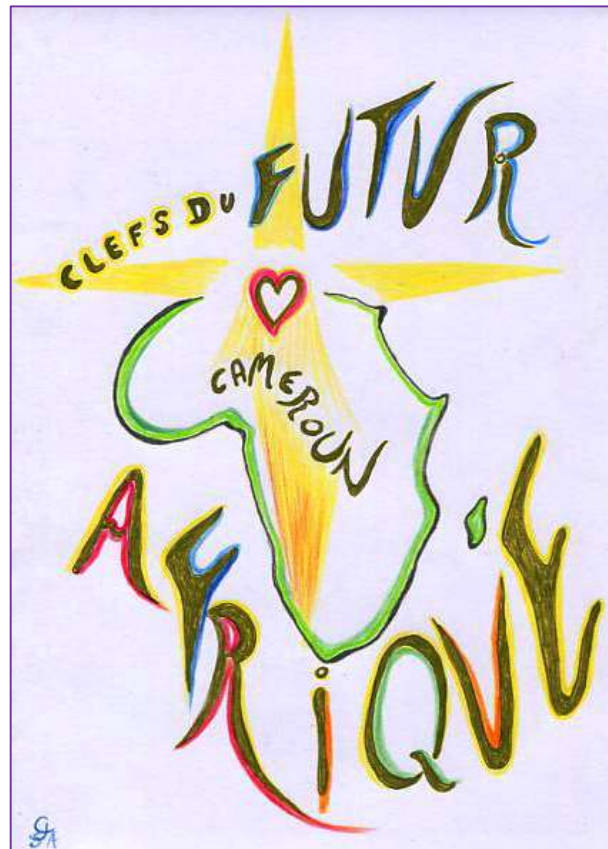 CLEFS DU FUTUR
CAMEROUN
AFRiQUE